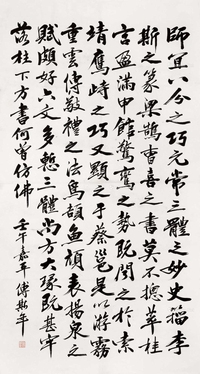 師宜八分之巧元常三體之妙史籀李
斯之篆梁鵠曹喜之書莫不摠萃桂
宮盈滿甲館驚鸞之勢既聞之於索
靖鷹峙之巧又顯之于蔡邕是以游霧
重雲傳敬禮之法鳥頡魚頏表揚泉之
賦頗好六文多慙三體尚方大篆既甚牢
落柱下方書何曾仿佛
壬午嘉平 傅斯年